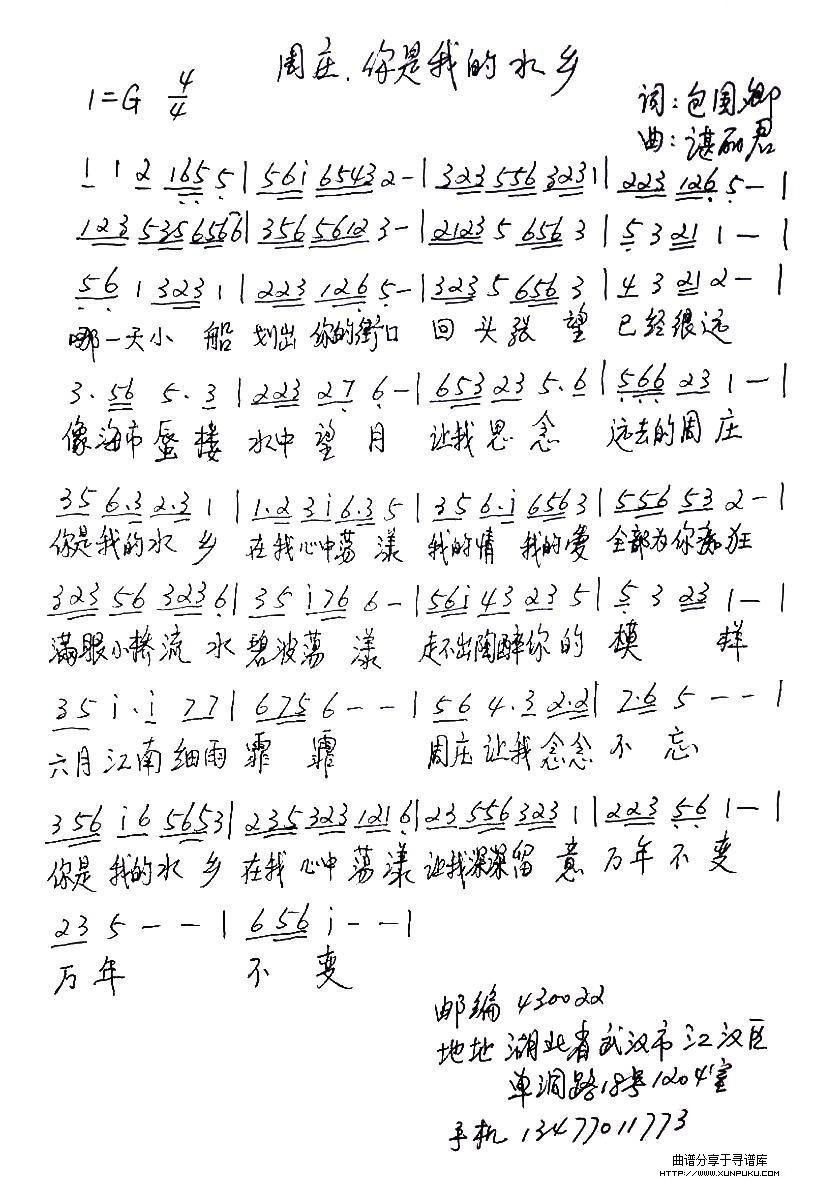 周庄.你是我的水乡
1=G 4/4
词:包国卿
曲:谌丽君
1 1 2 165 5 | 56i 6543 2 - | 323 556 323 1 | 223 126 5 - |
123 535 6566 | 356 5612 3 - | 2123 5 656 3 | 5 3 21 1 - |
56 1 323 1 | 223 126 5 - | 323 5 656 3 | 4 3 21 2 - |
哪一天小 船 划出 你的街口 回 头 张 望 已经很远
3. 56 5. 3 | 223 27 6 - | 653 23 5. 6 | 566 23 1 - |
像海市 蜃 楼 水中 望 月 让我 思 念 远去的周 庄
35 6.3 2.3 1 | 1.2 3i 6.3 5 | 35 6.i 656 3 | 556 53 2 - |
你是我的水 乡 在我心中荡 漾 我的情 我的爱 全部为你痴狂
323 56 323 6 | 35 i76 6 - | 56i 43 23 5 | 5 3 23 1 - |
满眼小桥流 水 碧波荡 漾 走不出陶醉你 的 模 样
35 i. i 77 | 675 6 - - | 56 4.3 2.2 | 7.6 5 - - |
六月江南细雨 霏 霏 周庄让我念念 不 忘
356 i6 5653 | 235 323 121 6 | 23 556 323 1 | 223 56 1 - |
你是 我的水 乡 在我 心中 荡漾 让我深深留 意 万年 不 变
23 5 - - | 656 i - - |
万 年 不 变
邮编 430022
地址 湖北省武汉市江汉区
单洞路18号1204室
手机 13477011773
曲谱分享于寻谱库
HTTP://WWW.XUNPUKU.COM